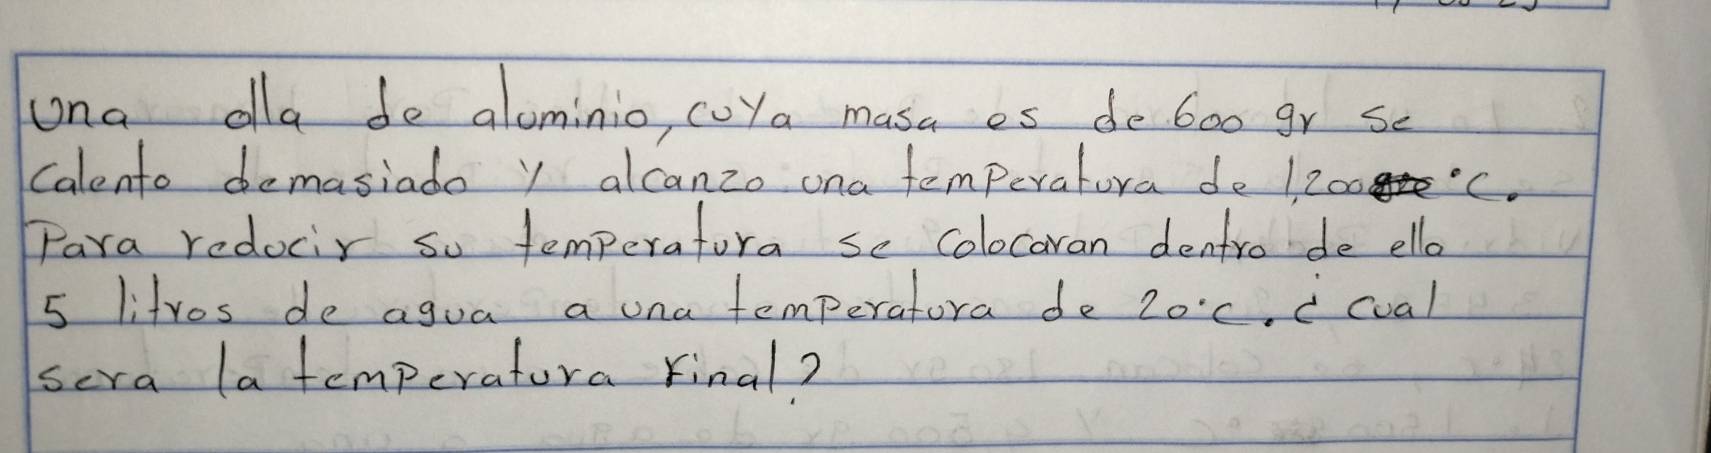 Una olla de aluminio, cuya masa es de 600 gr se
calento demasiado y alcanzo una temperatura de 1,200 °C.
Para reducir su temperatura se colocaran dentro de ella
5 litros de agua a una temperatura de 20°C. ¿ Cual
sera la temperatura Final?